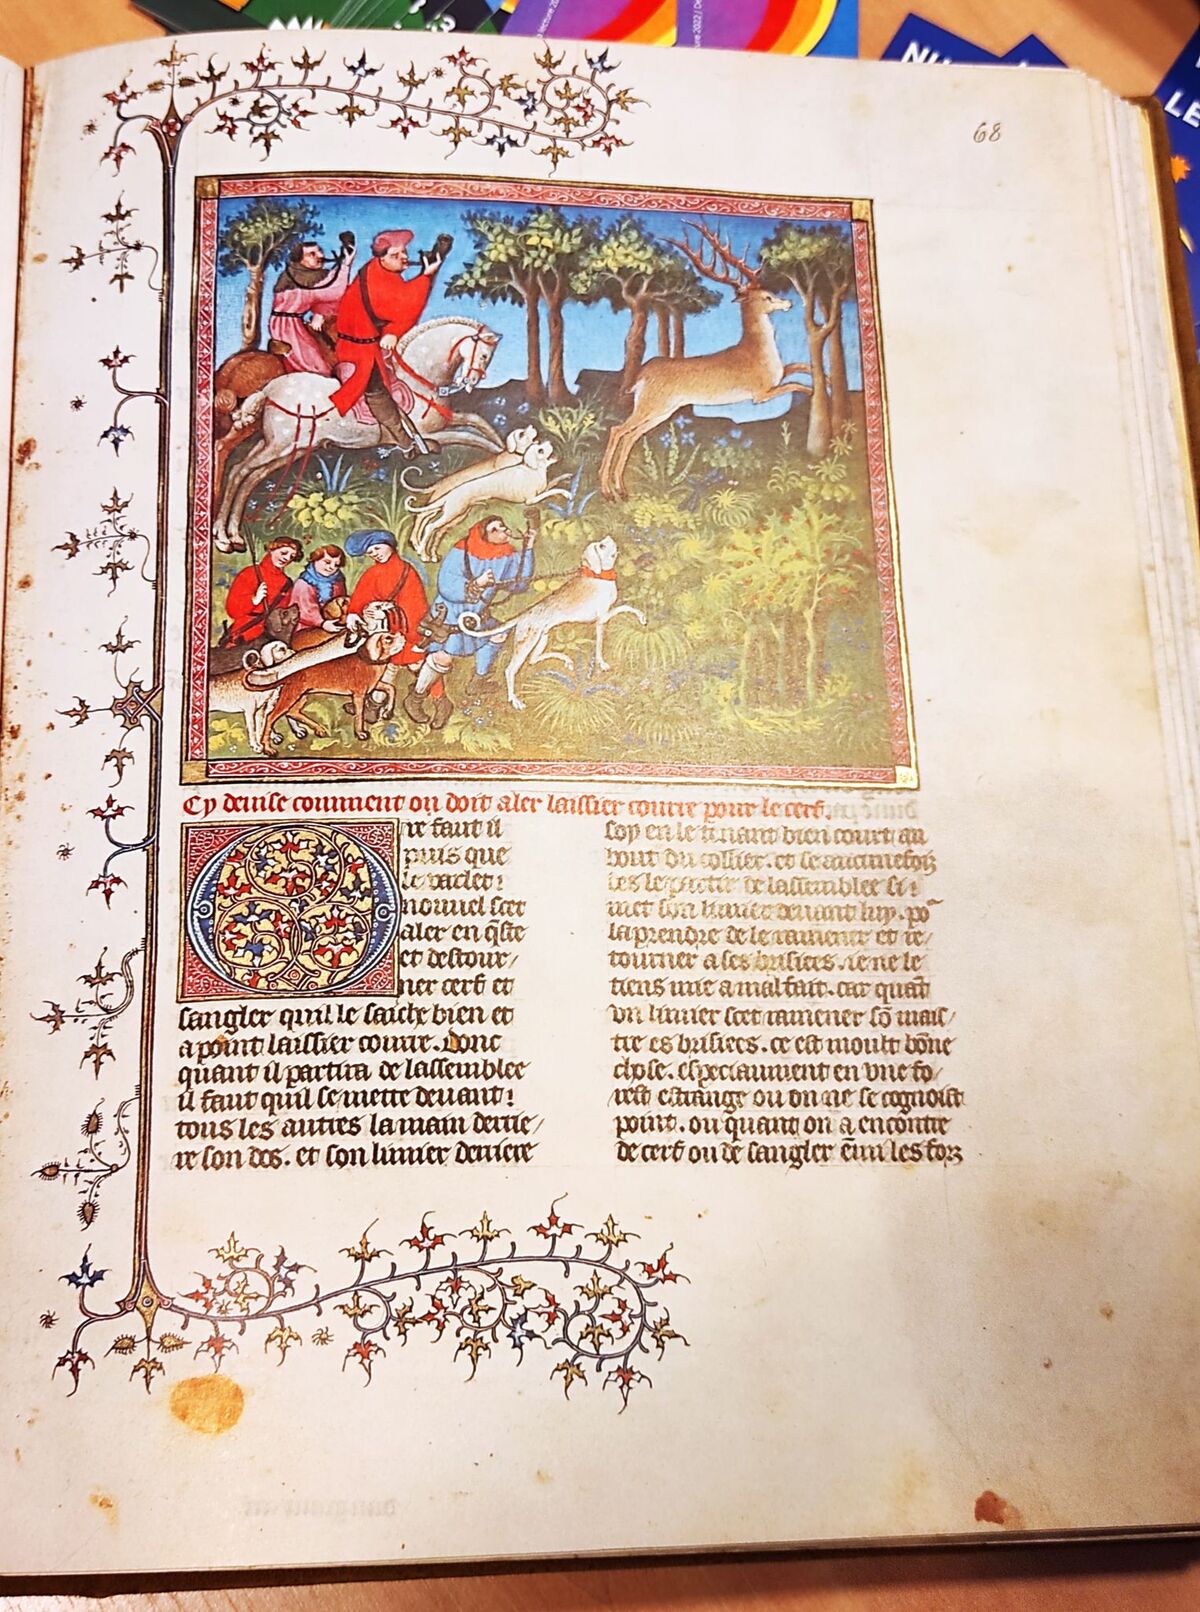 68
Cy deuise comment on doit aler laissier courre pour le cerf.
Ore faut il
puis que
le varlet
nouuel scet
aler en q̃ste
et destour/
ner cerf et
sangler quil le saiche bien et
a point laissier courre. Donc
quant il partira de lassemblee
il faut quil se mette deuant
tous les autres la main derrie/
re son dos. et son limier derriere
soy en le tenant bien court au
bout du collier. et se aucunefoiz
les le partir de lassemblee si
met son limier deuant luy. po᷑
la prendre de le ramener et re/
tourner a ses brisiees. ie ne le
tiens mie a mal fait. car quāt
vn limier scet ramener sō mais/
tre es brisiees. ce est moult bōne
chose. especiaument en vne fo/
rest estrange ou on ne se cognoist
point. ou quant on a encontre
de cerf ou de sangler ēmi les forz